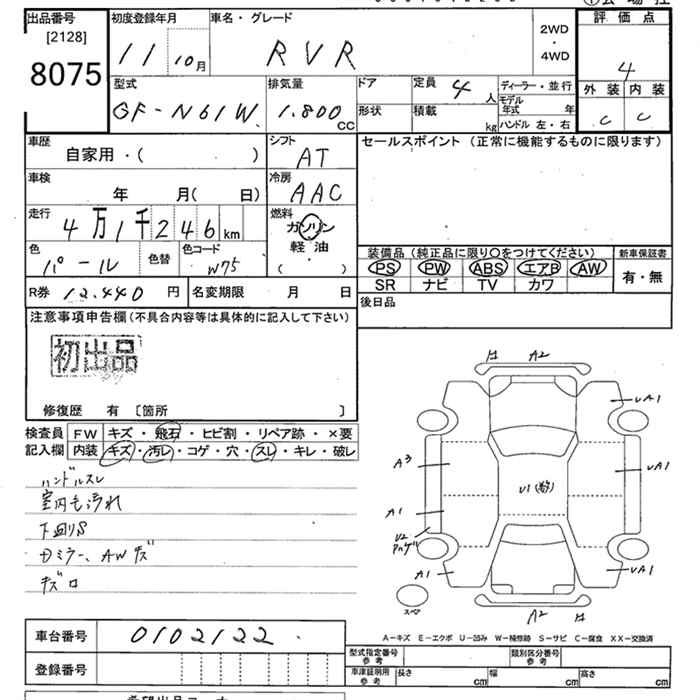 出品番号 [2128] 8075
初度登録年月 11 10月
車名・グレード RVR
2WD・4WD
評価点 4
外装 C 内装 C
型式 GF-N61W
排気量 1.800cc
ドア
形状
定員 4人
積載 kg
ディーラー・並行
モデル年式 年
ハンドル 左・右
車歴 自家用・( )
シフト AT
セールスポイント (正常に機能するものに限ります)
車検 年 月( 日)
冷房 AAC
走行 4万1千246km
燃料 ガソリン 軽・油 ( )
色 パール 色替
色コード W75
装備品(純正品に限り○をつけてください)
PS PW ABS エアB AW
SR ナビ TV カワ
新車保証書 有・無
R券 12.440円
名変期限 月 日
後日品
注意事項申告欄(不具合内容等は具体的に記入して下さい)
初出品
修復歴 有 〔箇所 〕
検査員記入欄
FW キズ・飛石・ヒビ割・リペア跡・×要
内装 キズ・汚レ・コゲ・穴・スレ・キレ・破レ
ハンドルスレ
室内も汚れ
下回りS
Dミラー、AWキズ
キズロ
A2
UA1
A3
UA1
U1
A1
U2
A1
UA1
スペア
A2
A-キズ E-エクボ U-凹み W-補修跡 S-サビ C-腐食 XX-交換済
車台番号 0102122
登録番号
型式指定番号 参考
類別区分番号 参考
車庫証明用 参考 長さ cm 幅 cm 高さ cm